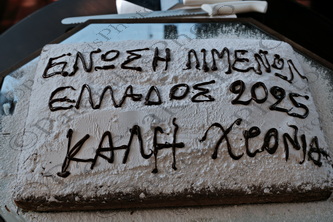 ΕΝΩΣΗ ΛΙΜΕΝΩΝ
ΕΛΛΑΔΟΣ 2025
ΚΑΛΗ ΧΡΟΝΙΑ